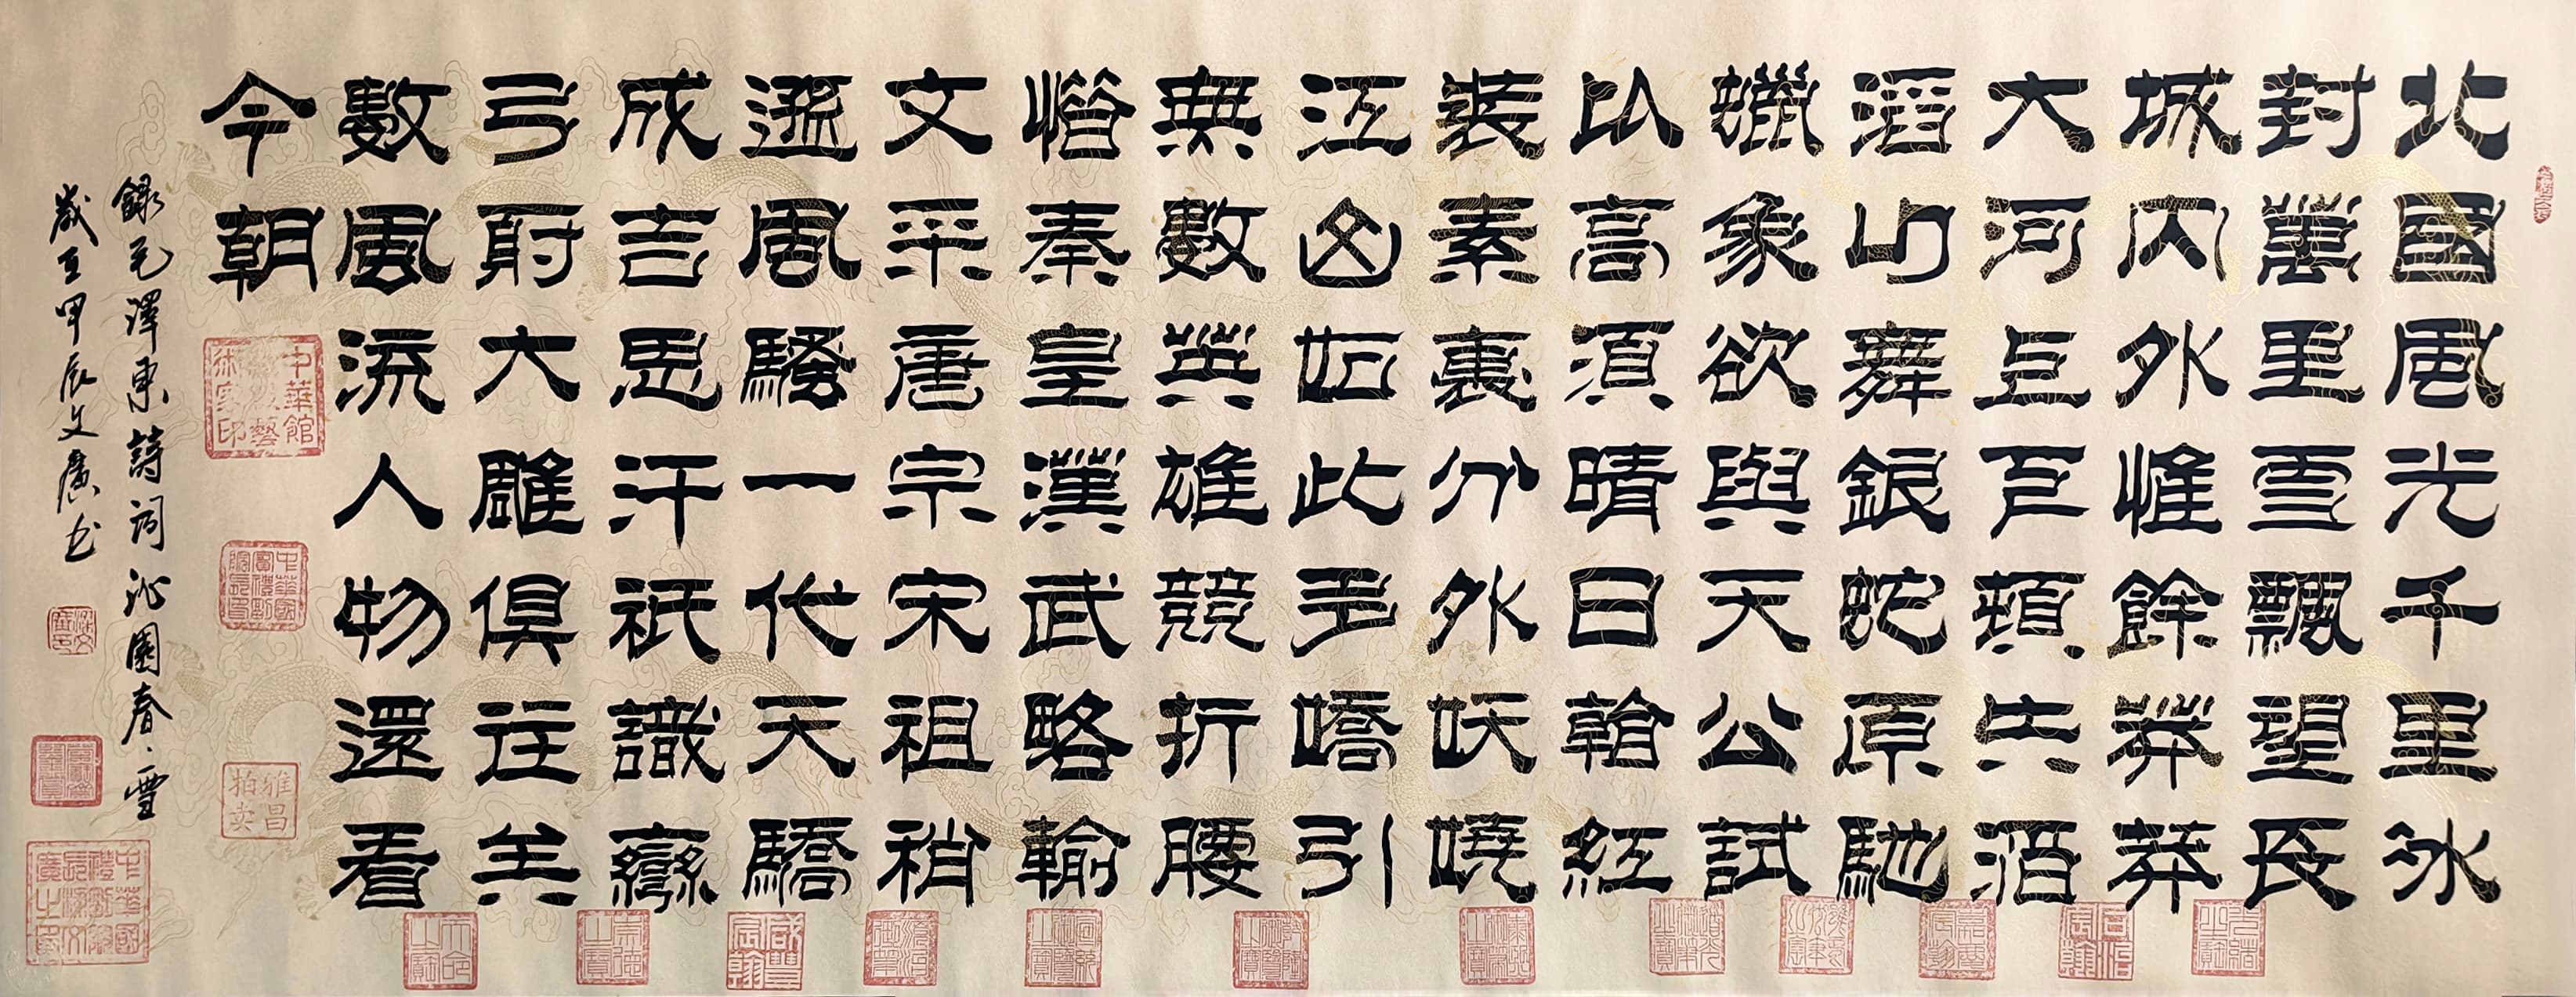 北國風光千里冰
封萬里雪飄望長
城内外惟餘莽莽
大河上下頓失滔
滔山舞銀蛇原馳
蠟象欲與天公試
以高須晴日看紅
裝素裹分外妖嬈
江山如此多嬌引
無數英雄競折腰
惜秦皇漢武略輸
文采唐宗宋祖稍
遜風騷一代天驕
成吉思汗祇識彎
弓射大雕俱往矣
數風流人物還看
今朝
錄毛澤東詩詞沁園春、雪
歲在甲辰文廣书
雅昌拍卖
咸豐宸翰